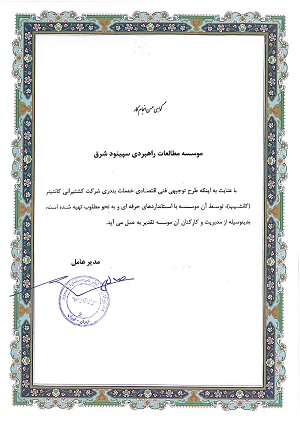 گواهی حسن انجام کار
موسسه مطالعات راهبردی سپینود شرق
با عنایت به اینکه طرح توجیهی فنی اقتصادی خدمات بندری شرکت کشتیرانی کانتینر
(کانشیپ)، توسط آن موسسه با استانداردهای حرفه ای و به نحو مطلوب تهیه شده است،
بدینوسیله از مدیریت و کارکنان آن موسسه تقدیر به عمل می آید.
مدیر عامل